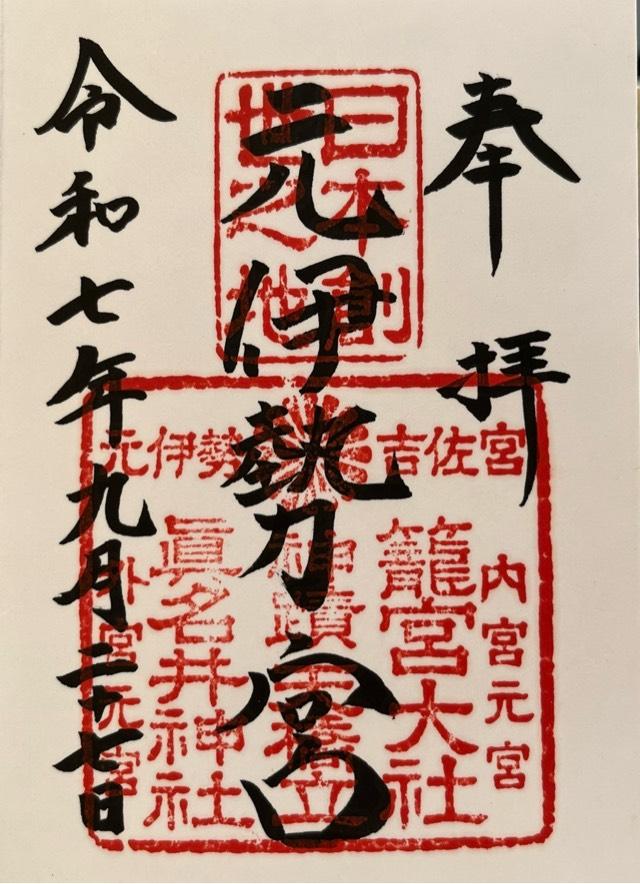 奉拝
日本創
世之地
元伊勢宮
元伊勢 吉佐宮
内宮元宮
籠宮大社
神蹟天橋立
眞名井神社
外宮元宮
令和七年九月二十七日